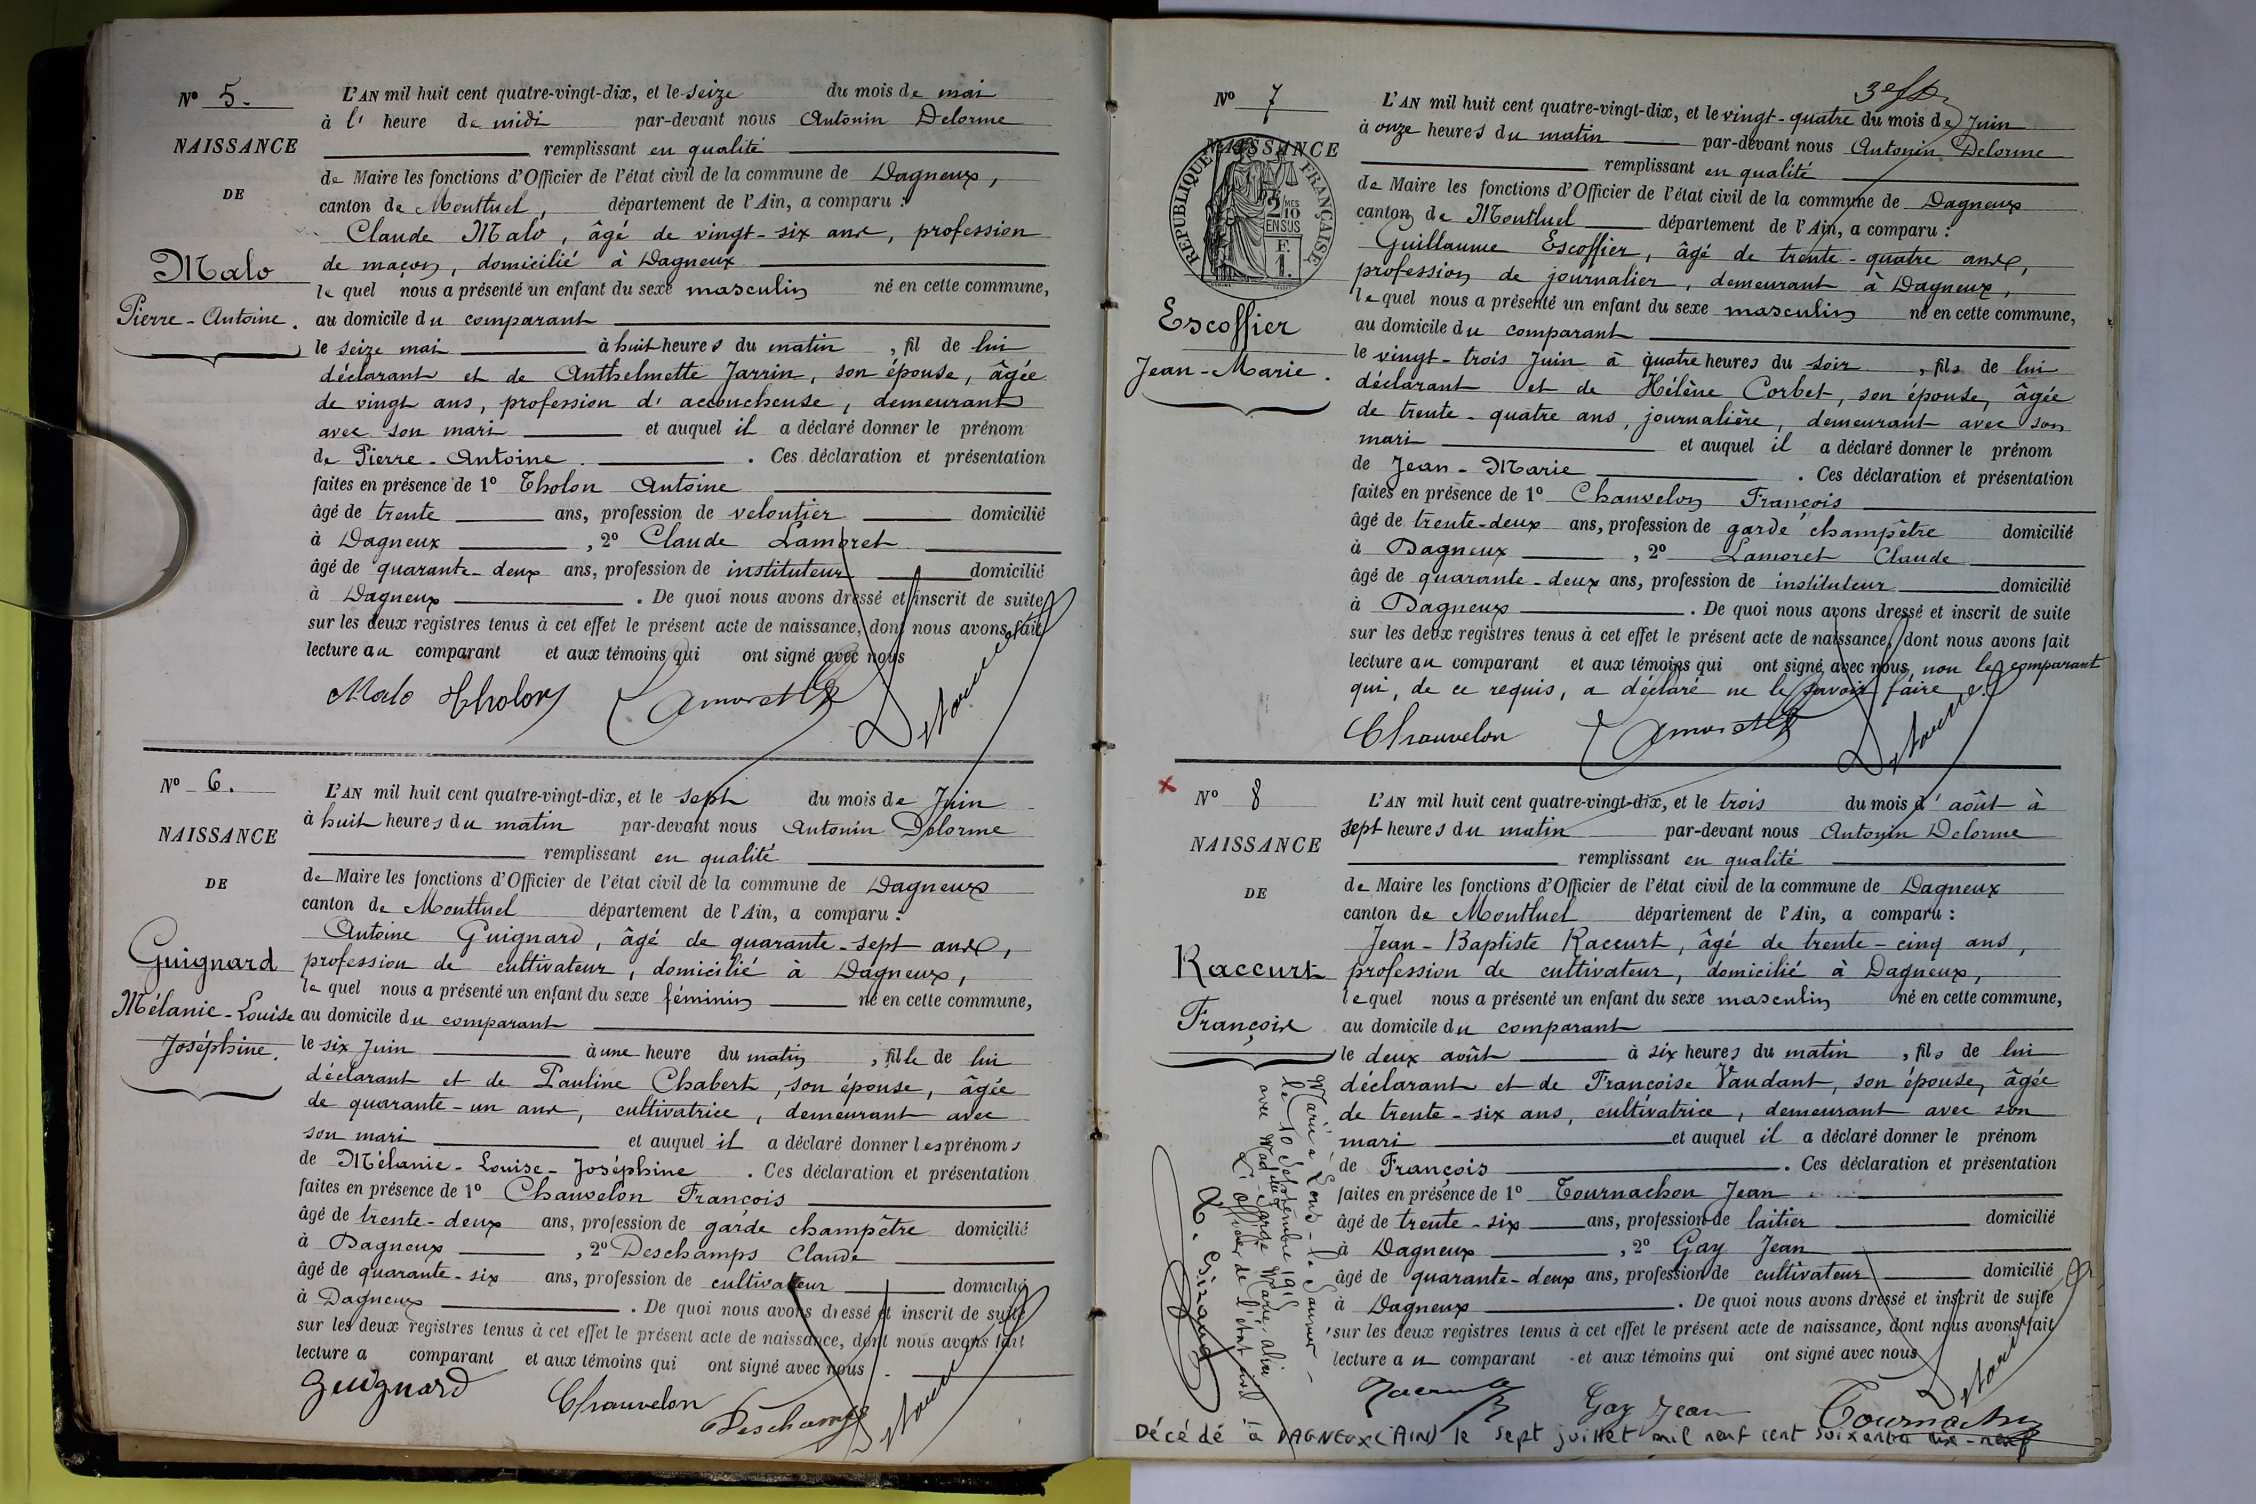 N° 5.
NAISSANCE
DE
Malo
Pierre-Antoine.
L'AN mil huit cent quatre-vingt-dix, et le seize du mois de mai
à l' heure de midi par-devant nous Antonin Delorme
remplissant en qualité
de Maire les fonctions d'Officier de l'état civil de la commune de Dagneux,
canton de Montluel, département de l'Ain, a comparu :
Claude Malo, âgé de vingt-six ans, profession
de maçon, domicilié à Dagneux
le quel nous a présenté un enfant du sexe masculin né en cette commune,
au domicile du comparant
le seize mai à huit heures du matin, fil de lui
déclarant et de Anthelmette Jarrin, son épouse, âgée
de vingt ans, profession d'accoucheuse, demeurant
avec son mari et auquel il a déclaré donner le prénom
de Pierre-Antoine. Ces déclaration et présentation
faites en présence de 1° Tholon Antoine
âgé de trente ans, profession de veloutier domicilié
à Dagneux, 2° Claude Lamoret
âgé de quarante-deux ans, profession de instituteur domicilié
à Dagneux. De quoi nous avons dressé et inscrit de suite
sur les deux registres tenus à cet effet le présent acte de naissance, dont nous avons fait
lecture au comparant et aux témoins qui ont signé avec nous
Malo Tholon Lamoret Delorme
N° 6.
NAISSANCE
DE
Guignard
Mélanie-Louise
Joséphine.
L'AN mil huit cent quatre-vingt-dix, et le sept du mois de Juin
à huit heures du matin par-devant nous Antonin Delorme
remplissant en qualité
de Maire les fonctions d'Officier de l'état civil de la commune de Dagneux
canton de Montluel département de l'Ain, a comparu :
Antoine Guignard, âgé de quarante-sept ans,
profession de cultivateur, domicilié à Dagneux,
le quel nous a présenté un enfant du sexe féminin né en cette commune,
au domicile du comparant
le six Juin à une heure du matin, fille de lui
déclarant et de Pauline Chabert, son épouse, âgée
de quarante-un ans, cultivatrice, demeurant avec
son mari et auquel il a déclaré donner les prénoms
de Mélanie-Louise-Joséphine. Ces déclaration et présentation
faites en présence de 1° Chauvelon François
âgé de trente-deux ans, profession de garde champêtre domicilié
à Dagneux, 2° Deschamps Claude
âgé de quarante-six ans, profession de cultivateur domicilié
à Dagneux. De quoi nous avons dressé et inscrit de suite
sur les deux registres tenus à cet effet le présent acte de naissance, dont nous avons fait
lecture a comparant et aux témoins qui ont signé avec nous.
Guignard Chauvelon Deschamps Delorme
N° 7
NAISSANCE
RÉPUBLIQUE FRANÇAISE
2/10 MES
EN SUS
F.
1.
Escoffier
Jean-Marie.
L'AN mil huit cent quatre-vingt-dix, et le vingt-quatre du mois de Juin
à onze heures du matin par-devant nous Antonin Delorme
remplissant en qualité
de Maire les fonctions d'Officier de l'état civil de la commune de Dagneux
canton de Montluel département de l'Ain, a comparu :
Guillaume Escoffier, âgé de trente-quatre ans,
profession de journalier, demeurant à Dagneux,
le quel nous a présenté un enfant du sexe masculin né en cette commune,
au domicile du comparant
le vingt-trois Juin à quatre heures du soir, fils de lui
déclarant et de Hélène Corbet, son épouse, âgée
de trente-quatre ans, journalière, demeurant avec son
mari et auquel il a déclaré donner le prénom
de Jean-Marie. Ces déclaration et présentation
faites en présence de 1° Chauvelon François
âgé de trente-deux ans, profession de garde champêtre domicilié
à Dagneux, 2° Lamoret Claude
âgé de quarante-deux ans, profession de instituteur domicilié
à Dagneux. De quoi nous avons dressé et inscrit de suite
sur les deux registres tenus à cet effet le présent acte de naissance, dont nous avons fait
lecture au comparant et aux témoins qui ont signé avec nous, non le comparant
qui, de ce requis, a déclaré ne le savoir faire.
Chauvelon Lamoret Delorme
N° 8
NAISSANCE
DE
Raccurt
François
L'AN mil huit cent quatre-vingt-dix, et le trois du mois d'août à
sept heures du matin par-devant nous Antonin Delorme
remplissant en qualité
de Maire les fonctions d'Officier de l'état civil de la commune de Dagneux
canton de Montluel département de l'Ain, a comparu :
Jean-Baptiste Raccurt, âgé de trente-cinq ans,
profession de cultivateur, domicilié à Dagneux,
le quel nous a présenté un enfant du sexe masculin né en cette commune,
au domicile du comparant
le deux août à six heures du matin, fils de lui
déclarant et de Françoise Vaudant, son épouse, âgée
de trente-six ans, cultivatrice, demeurant avec son
mari et auquel il a déclaré donner le prénom
de François. Ces déclaration et présentation
faites en présence de 1° Tournachon Jean
âgé de trente-six ans, profession de laitier domicilié
à Dagneux, 2° Gay Jean
âgé de quarante-deux ans, profession de cultivateur domicilié
à Dagneux. De quoi nous avons dressé et inscrit de suite
sur les deux registres tenus à cet effet le présent acte de naissance, dont nous avons fait
lecture au comparant et aux témoins qui ont signé avec nous
Raccurt Gay Jean Tournachon Delorme
Marié à Lons-le-Saunier
le 10 Septembre 191
avec Marie
L'officier de l'état civil
Décédé à DAGNEUX (AIN) le sept juillet mil neuf cent soixante dix-neuf